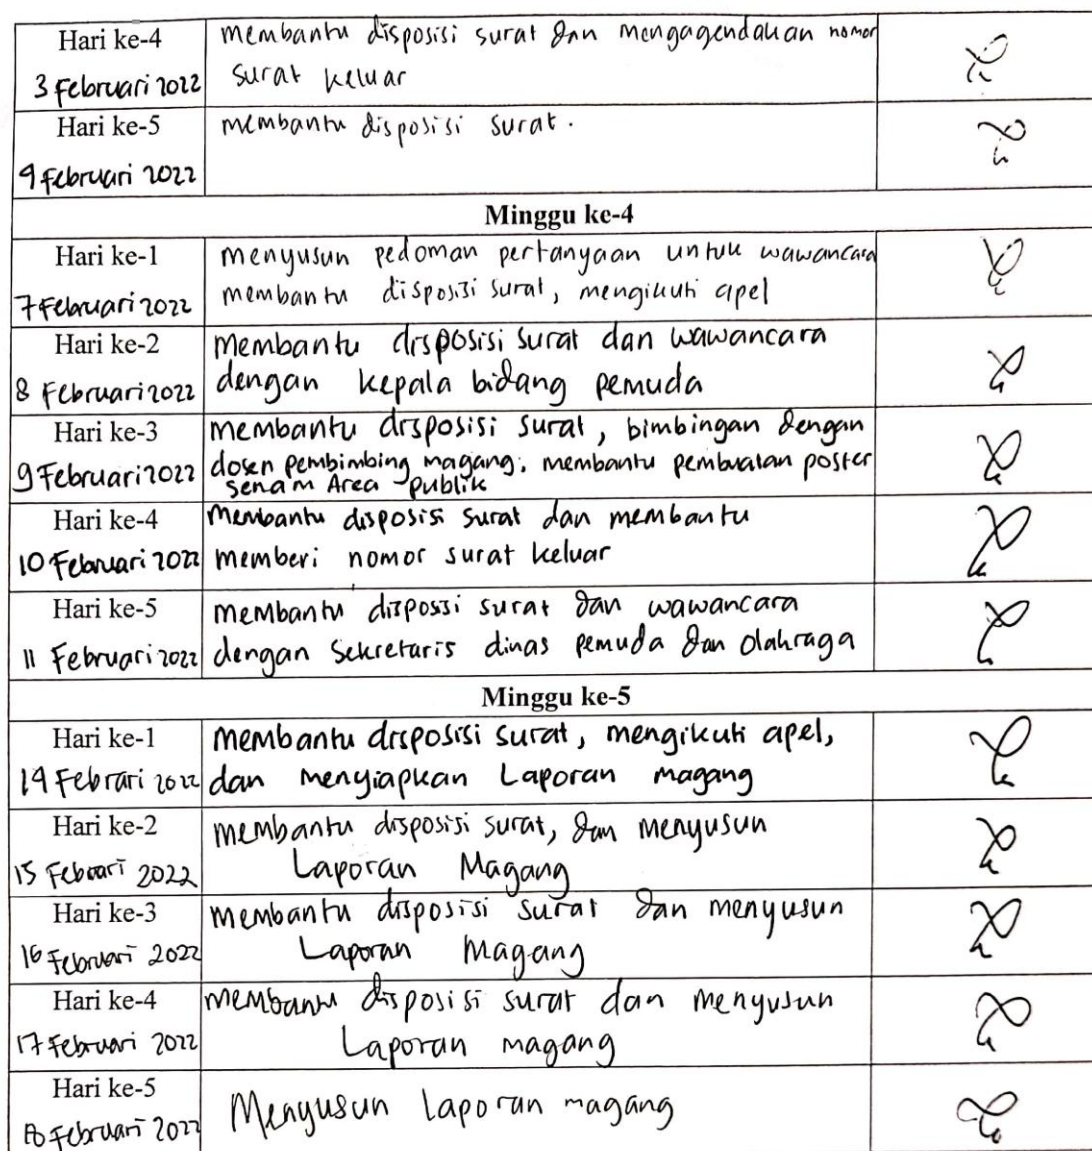 Hari ke-4
3 Februari 2022
membantu disposisi surat dan mengagendakan nomor
surat keluar
Hari ke-5
4 Februari 2022
membantu disposisi surat.
Minggu ke-4
Hari ke-1
7 Februari 2022
menyusun pedoman pertanyaan untuk wawancara
membantu disposisi surat, mengikuti apel
Hari ke-2
8 Februari 2022
Membantu disposisi surat dan wawancara
dengan kepala bidang pemuda
Hari ke-3
9 Februari 2022
membantu disposisi surat, bimbingan dengan
dosen pembimbing magang. membantu pembuatan poster
senam Area publik
Hari ke-4
10 Februari 2022
Membantu disposisi surat dan membantu
memberi nomor surat keluar
Hari ke-5
11 Februari 2022
membantu dispossi surat dan wawancara
dengan Sekretaris dinas pemuda dan Olahraga
Minggu ke-5
Hari ke-1
14 Febrari 2022
membantu disposisi surat, mengikuti apel,
dan menyiapkan Laporan magang
Hari ke-2
15 Februari 2022
membantu disposisi surat, dan menyusun
Laporan Magang
Hari ke-3
16 Februari 2022
membantu disposisi surat dan menyusun
Laporan Magang
Hari ke-4
17 Februari 2022
membantu disposisi surat dan menyusun
Laporan magang
Hari ke-5
18 Februari 2022
Menyusun Laporan magang